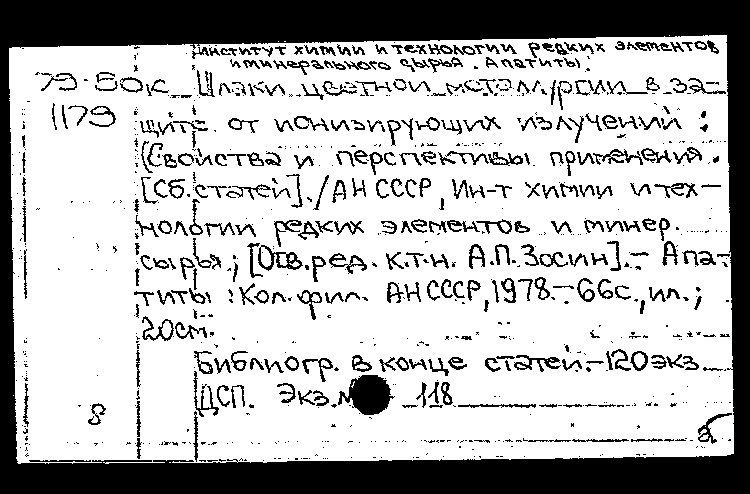 Институт химии и технологии редких элементов
и минерального сырья. Апатиты.
79-50к Шлаки цветной металлургии в за-
1179 щите от ионизирующих излучений :
(Свойства и перспективы применения.
[Сб. статей]. /АН СССР, Ин-т химии и тех-
нологии редких элементов и минер.
сырья; [Отв. ред. к.т.н. А.П. Зосин].- Апа-
титы : Кол. фил. АН СССР, 1978.-66с., ил.;
20см.
Библиогр. в конце статей.-120экз.
ДСП. Экз.№ 118
8